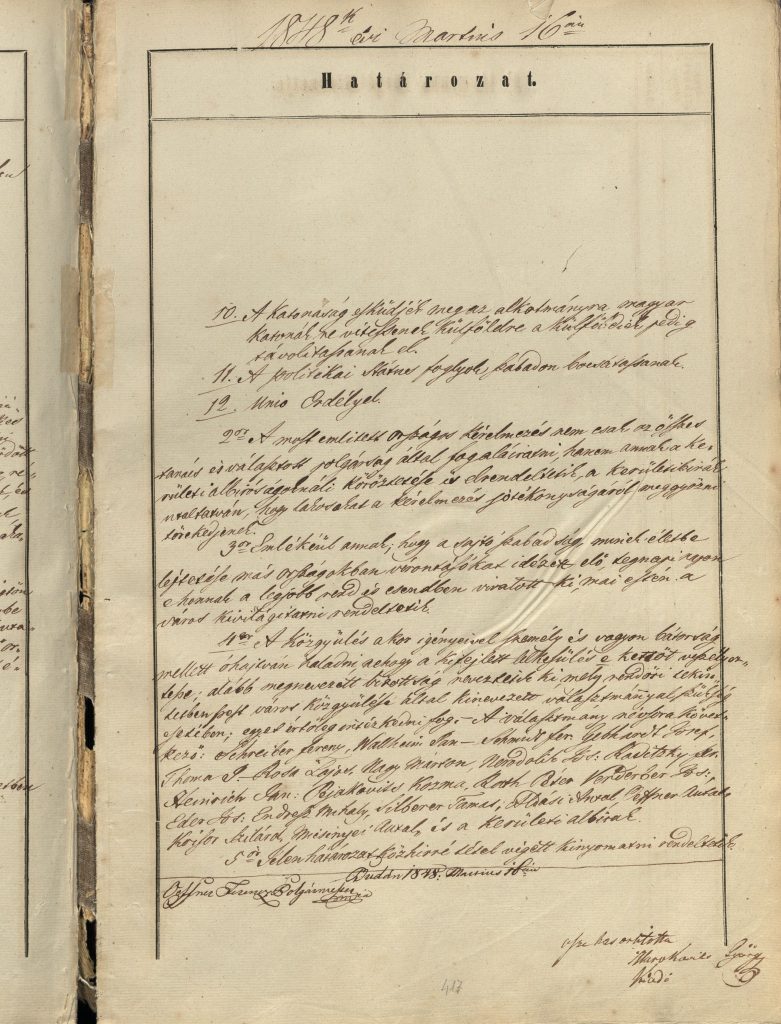 1848ik évi Martius 16án
Határozat.
10. A katonaság esküdjék meg az alkotmányra, magyar
katonák ne vitessenek külföldre a külföldiek pedig
távolítassanak el.
11. A politikai státus foglyok szabadon bocsátassanak.
12. Unio Erdélyel.
2or A most emlitett országos kérelmezés nem csak az összes
tanács és választott polgárság által fog aláiratni, hanem annak a ke-
rületi albiróságoknáli köröztetése is elrendeltetik, a kerületi birák
utasitatván, hogy lakosokat a kérelmezés jótékonyságáról meggyőzni
törekedjenek.
3or Emlékéül annak, hogy a sajtó szabadság, minek életbe
léptetése más országokban vérontásokat idézett elő, tegnapi napon
e honnak a legjobb rend és csendben vivatott ki, mai estén a
város kivilágitatni rendeltetik.
4er A Közgyülés a kor igényeivel személy és vagyon bátorság
mellett óhajtván haladni, nehogy a kifejlett lelkesülés e kettőt veszélyez-
tesse; alább megnevezett bizottság neveztetik ki, mely rendőri tekin-
tetben Pest város közgyülése által kinevezett választmányal, szükség
esetében, egyet értőleg intézkedni fog. – A választmány névsora követ-
kező: Schreiber Ferencz, Wallheim Ján – Schmidt fer. Gebhardt Josef
Thoma J– Rosa Lajos, Nagy Marton, Kasitzky
Heinrich Ján: Bjakovits Kozma, Roth Peter
Eder Endresz Mihaly, Silberer Tamas, Antal, Antal,
Szilárd, Antal, és a kerületi albirák.
5ör Jelen határozat közhirré tétel végett kinyomatni rendeltetik.
Budán 1848. Martius 16án
Ferencz Polgármester
össze hasonlitotta
György
417